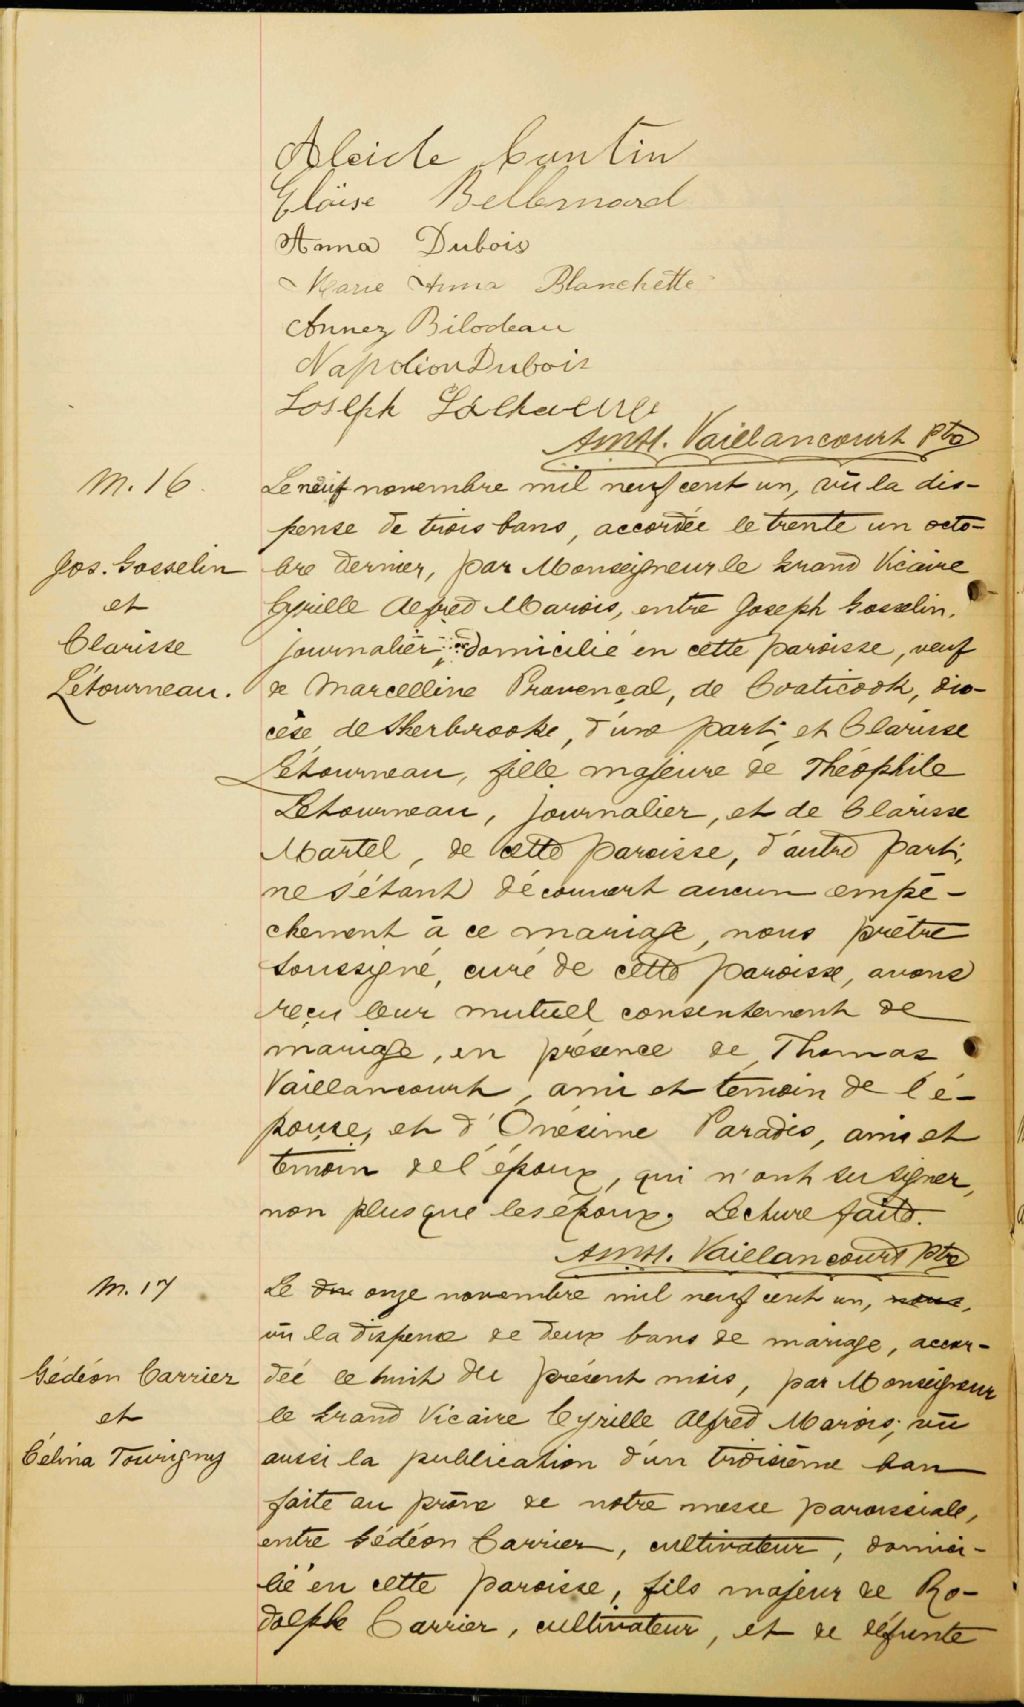 Alcide Cantin
Eloïse Bellemard
Anna Dubois
Marie Anna Blanchette
Annez Bilodeau
Napoléon Dubois
Joseph
AmH. Vaillancourt Ptre
M. 16
Jos. Gosselin
et
Clarisse
Létourneau.
Le neuf novembre mil neuf cent un, vu la dis-
pense de trois bans, accordée le trente un octo-
bre dernier, par Monseigneur le Grand Vicaire
Cyrille Alfred Marois, entre Joseph Gosselin,
journalier, domicilié en cette paroisse, veuf
de Marcelline Provençal, de Coaticook, dio-
cèse de Sherbrooke, d'une part, et Clarisse
Létourneau, fille majeure de Théophile
Letourneau, journalier, et de Clarisse
Martel, de cette paroisse, d'autre part,
ne s'étant découvert aucun empê-
chement à ce mariage, nous prêtre
soussigné, curé de cette paroisse, avons
reçu leur mutuel consentement de
mariage, en présence de Thomas
Vaillancourt, ami et témoin de l'é-
pouse, et d'Onésime Paradis, ami et
témoin de l'époux, qui n'ont su signer,
non plus que les époux. Lecture faite.
AmH. Vaillancourt Ptre
M. 17
Gédéon Carrier
et
Célina Tourigny
Le du onze novembre mil neuf cent un, nous,
vu la dispense de deux bans de mariage, accor-
dée le huit du présent mois, par Monseigneur
le Grand Vicaire Cyrille Alfred Marois; vu
aussi la publication d'un troisième ban
faite au prône de notre messe paroissiale,
entre Gédéon Carrier, cultivateur, domici-
lié en cette paroisse, fils majeur de Ro-
dolphe Carrier, cultivateur, et de défunte